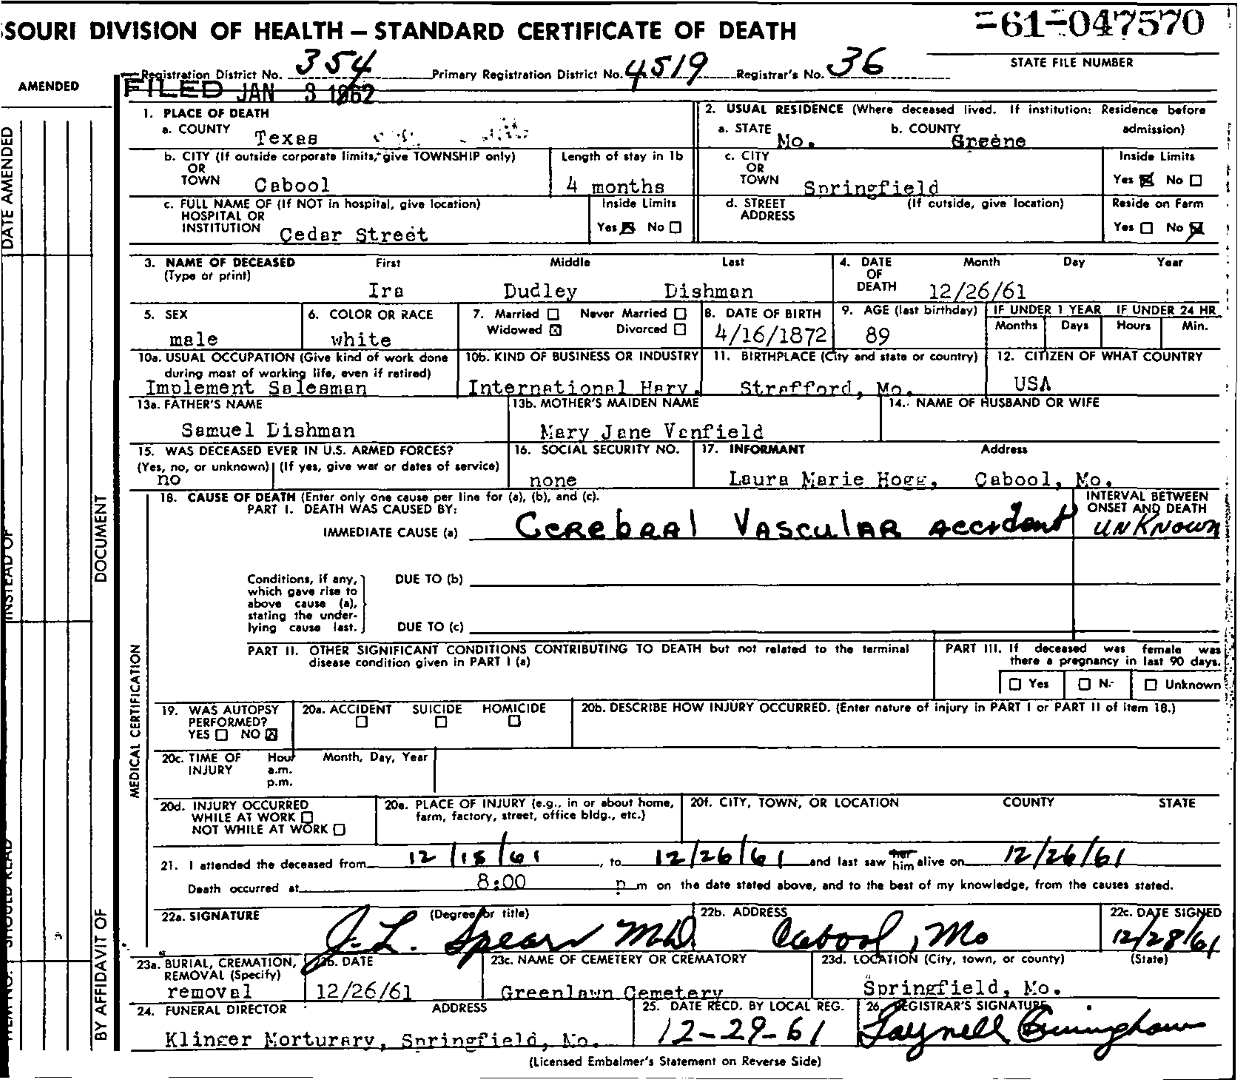 SOURI DIVISION OF HEALTH – STANDARD CERTIFICATE OF DEATH
-61-047570
STATE FILE NUMBER
Registration District No. 354 Primary Registration District No. 4519 Registrar's No. 36
AMENDED
FILED JAN 3 1962
1. PLACE OF DEATH
a. COUNTY Texas
2. USUAL RESIDENCE (Where deceased lived. If institution: Residence before admission)
a. STATE Mo. b. COUNTY Greene
b. CITY (If outside corporate limits, give TOWNSHIP only) OR TOWN Cabool
Length of stay in 1b 4 months
c. CITY OR TOWN Springfield
Inside Limits Yes ☒ No ☐
c. FULL NAME OF (If NOT in hospital, give location) HOSPITAL OR INSTITUTION Cedar Street
Inside Limits Yes ☒ No ☐
d. STREET ADDRESS (If outside, give location)
Reside on Farm Yes ☐ No ☒
3. NAME OF DECEASED (Type or print) First Middle Last
Ira Dudley Dishman
4. DATE OF DEATH Month Day Year
12/26/61
5. SEX male
6. COLOR OR RACE white
7. Married ☐ Never Married ☐ Widowed ☒ Divorced ☐
8. DATE OF BIRTH 4/16/1872
9. AGE (last birthday) 89
IF UNDER 1 YEAR Months Days
IF UNDER 24 HR Hours Min.
10a. USUAL OCCUPATION (Give kind of work done during most of working life, even if retired)
Implement Salesman
10b. KIND OF BUSINESS OR INDUSTRY
International Harv.
11. BIRTHPLACE (City and state or country)
Strafford, Mo.
12. CITIZEN OF WHAT COUNTRY
USA
13a. FATHER'S NAME
Samuel Dishman
13b. MOTHER'S MAIDEN NAME
Mary Jane Vanfield
14. NAME OF HUSBAND OR WIFE
15. WAS DECEASED EVER IN U.S. ARMED FORCES?
(Yes, no, or unknown) (If yes, give war or dates of service)
no
16. SOCIAL SECURITY NO.
none
17. INFORMANT Address
Laura Marie Hogg, Cabool, Mo.
18. CAUSE OF DEATH (Enter only one cause per line for (a), (b), and (c).
PART I. DEATH WAS CAUSED BY:
IMMEDIATE CAUSE (a) Cerebral Vascular accident
INTERVAL BETWEEN ONSET AND DEATH
unknown
Conditions, if any, which gave rise to above cause (a), stating the underlying cause last.
DUE TO (b)
DUE TO (c)
PART II. OTHER SIGNIFICANT CONDITIONS CONTRIBUTING TO DEATH but not related to the terminal disease condition given in PART I (a)
PART III. If deceased was female was there a pregnancy in last 90 days.
☐ Yes ☐ N. ☐ Unknown
19. WAS AUTOPSY PERFORMED? YES ☐ NO ☒
20a. ACCIDENT ☐ SUICIDE ☐ HOMICIDE ☐
20b. DESCRIBE HOW INJURY OCCURRED. (Enter nature of injury in PART I or PART II of item 18.)
20c. TIME OF INJURY Hour a.m. p.m. Month, Day, Year
20d. INJURY OCCURRED WHILE AT WORK ☐ NOT WHILE AT WORK ☐
20e. PLACE OF INJURY (e.g., in or about home, farm, factory, street, office bldg., etc.)
20f. CITY, TOWN, OR LOCATION COUNTY STATE
21. I attended the deceased from 12/15/61, to 12/26/61 and last saw her him alive on 12/26/61
Death occurred at 8:00 p m on the date stated above, and to the best of my knowledge, from the causes stated.
22a. SIGNATURE (Degree or title)
J. L. Spears M.D.
22b. ADDRESS
Cabool, Mo
22c. DATE SIGNED
12/28/61
23a. BURIAL, CREMATION, REMOVAL (Specify)
removal
23b. DATE
12/26/61
23c. NAME OF CEMETERY OR CREMATORY
Greenlawn Cemetery
23d. LOCATION (City, town, or county) (State)
Springfield, Mo.
24. FUNERAL DIRECTOR ADDRESS
Klinger Morturary, Springfield, Mo.
25. DATE RECD. BY LOCAL REG.
12-29-61
26. REGISTRAR'S SIGNATURE
Gaynell
(Licensed Embalmer's Statement on Reverse Side)
DATE AMENDED
INSTEAD OF
DOCUMENT
MEDICAL CERTIFICATION
SHOULD READ
BY AFFIDAVIT OF